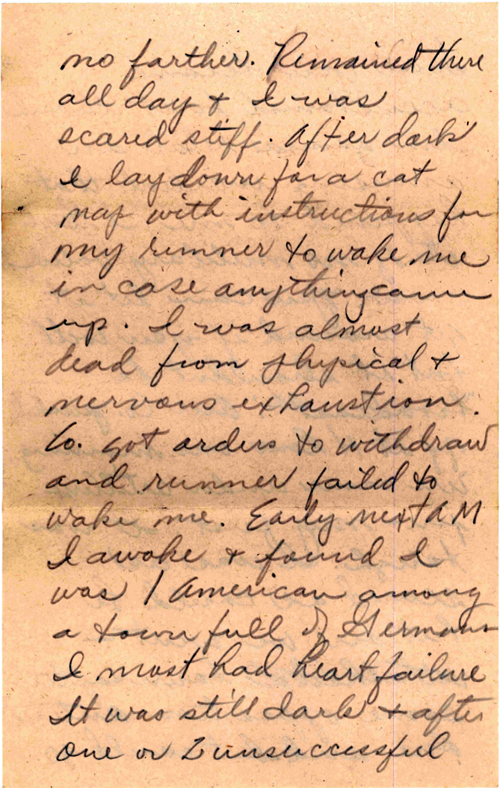 no farther. Remained there
all day & I was
scared stiff. After dark
I lay down for a cat
nap with instructions for
my runner to wake me
in case anything came
up. I was almost
dead from physical &
nervous exhaustion.
Co. got orders to withdraw
and runner failed to
wake me. Early next AM
I awoke & found I
was 1 American among
a town full of Germans
I most had heart failure
It was still dark & after
one or 2 unsuccessful